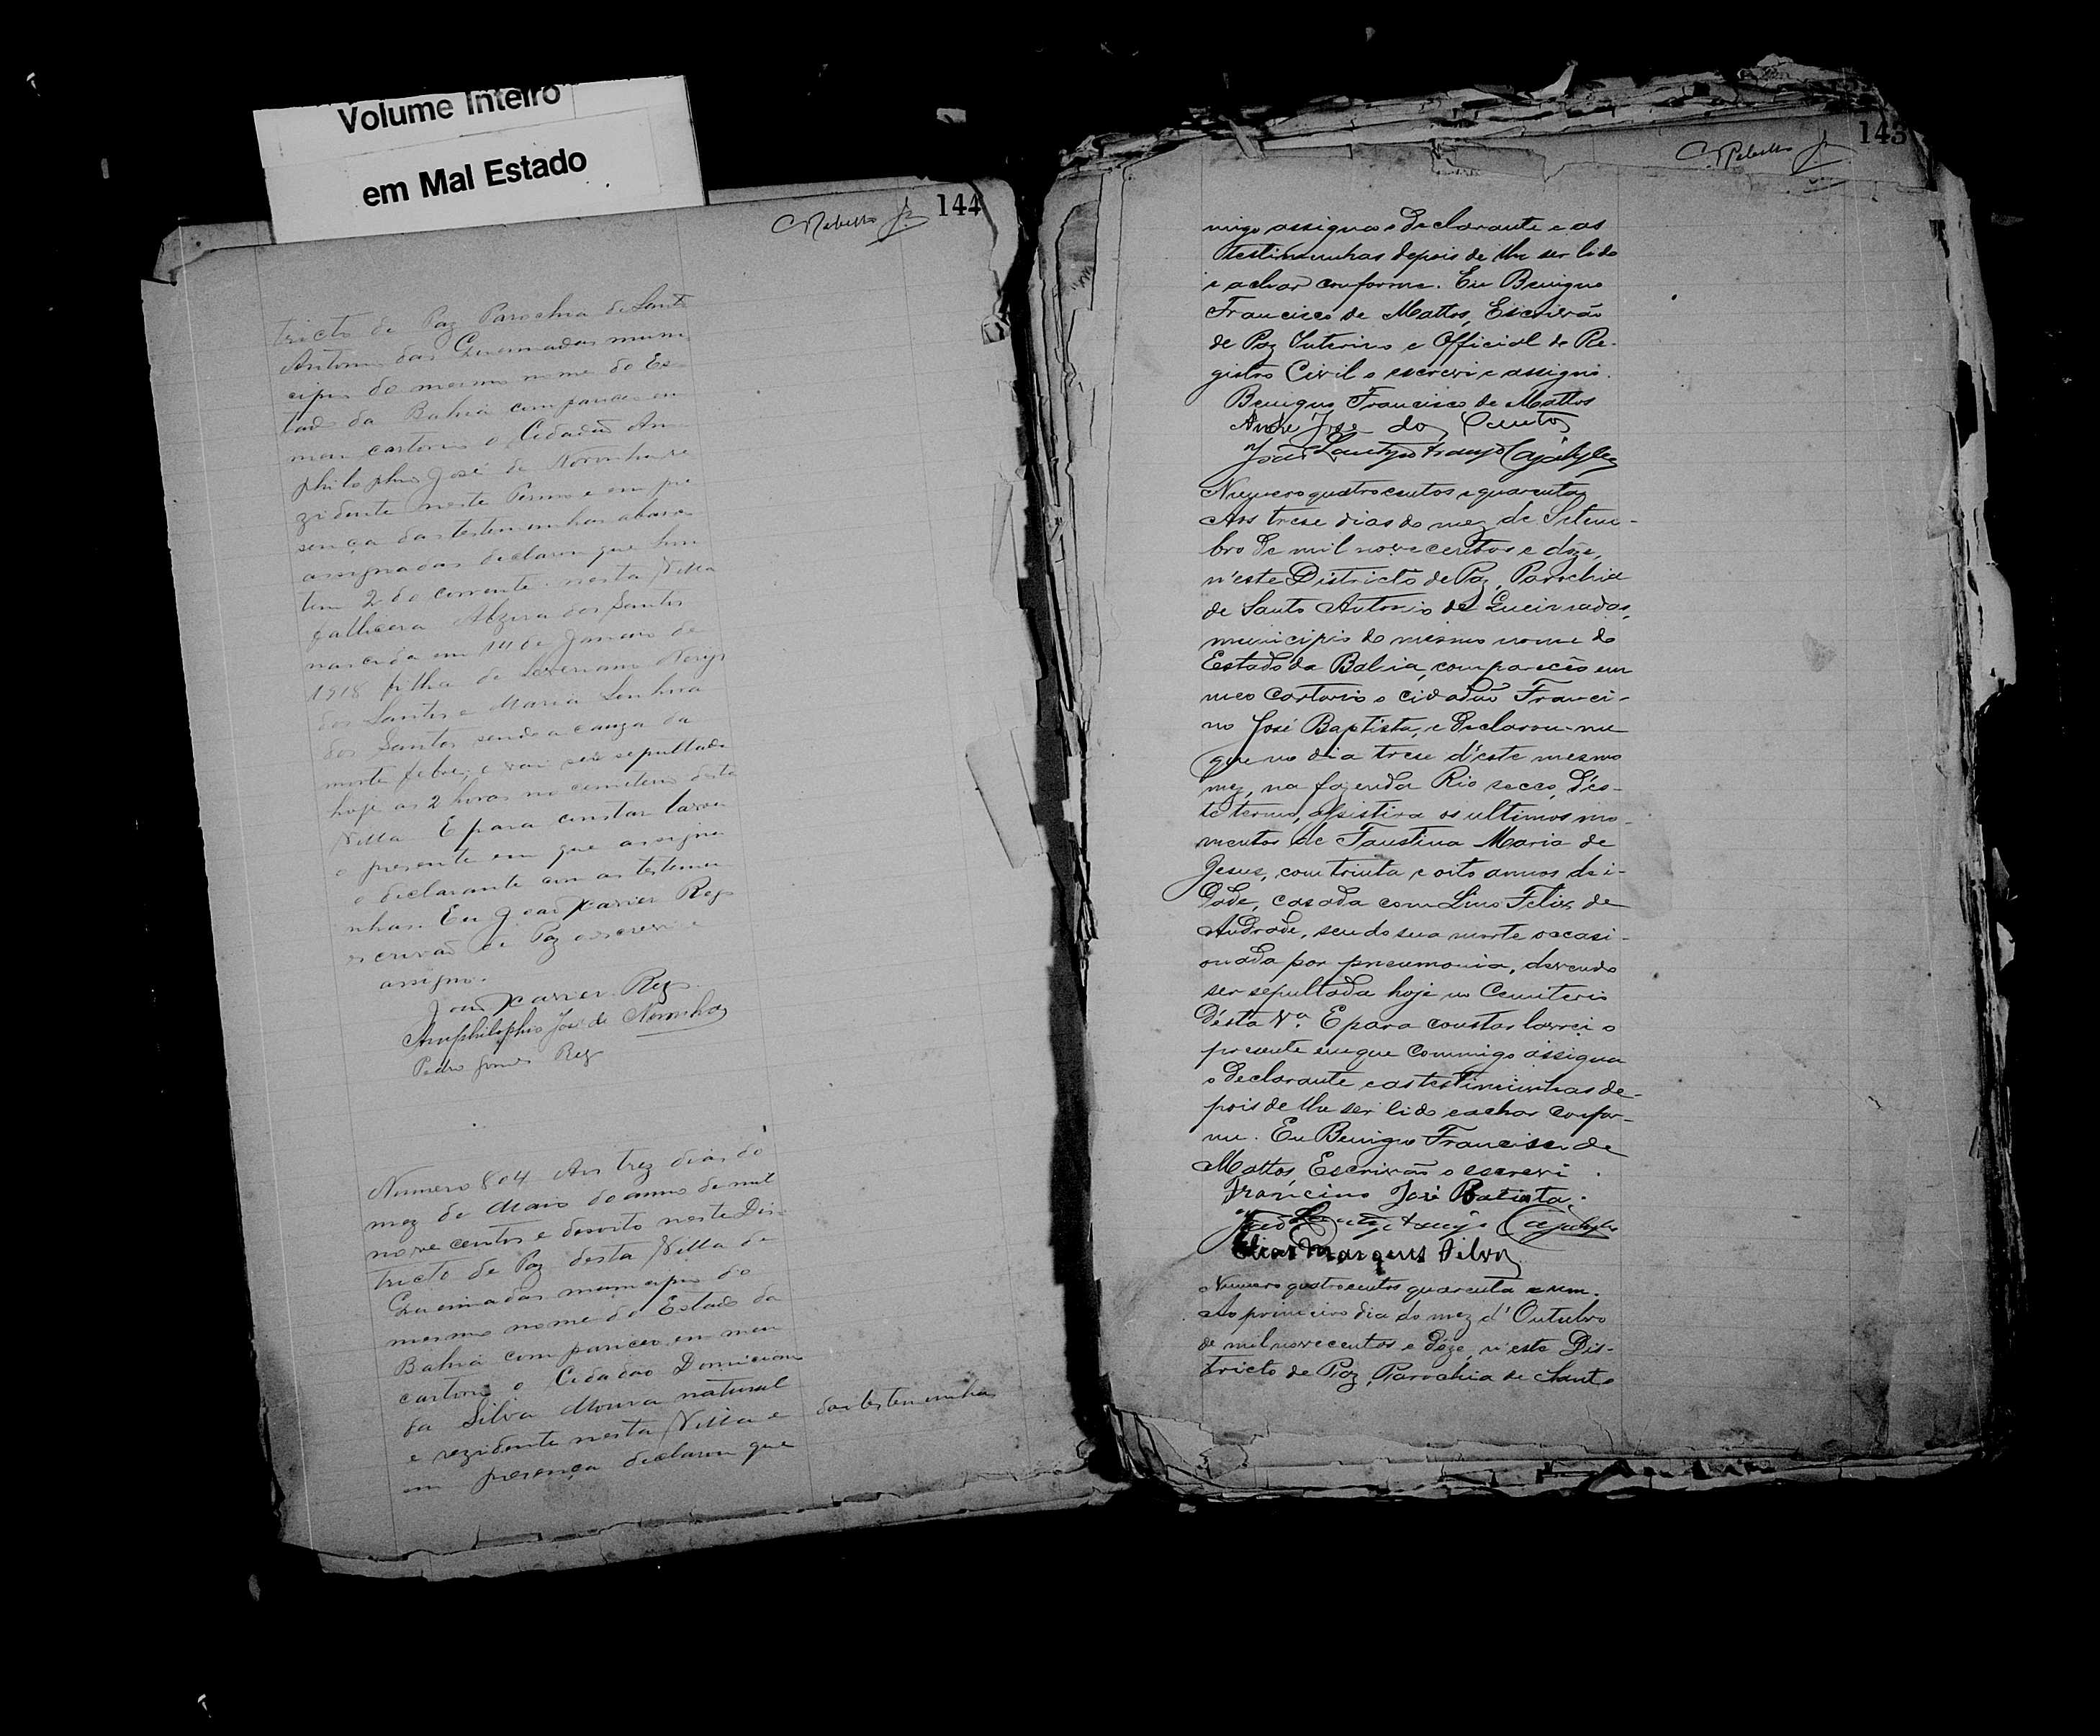 Volume Inteiro
em Mal Estado
144
tricto de Paz Parochia de Santo
Antonio das Queimadas muni
cipio do mesmo nome do Es
tado da Bahia compareceu em
meu cartorio o Cidadão Am
philophio José de Noronha re
zidente neste Termo e em pre
sença das testemunhas abaixo
assignadas declarou que hon
tem 2 do corrente nesta Villa
falleceu Alzira dos Santos
nascida em 14 de Janeiro de
1918 filha de Severiano Nerys
dos Santos e Maria Senhora
dos Santos sendo a cauza da
morte febre, e vai ser sepultada
hoje as 2 horas no cemiterio desta
Villa. E para constar lavrei
o presente em que assigna
o declarante com as testemu
nhas. Eu João Xavier Reys
escrivão de Paz o escrevi e
assigno.
João Xavier Reys
Amphilophio José de Noronha
Pedro Gomes Reys
Numero 804 Aos trez dias do
mez de Maio do anno de mil
nove centos e desoito neste Dis
tricto de Paz desta Villa de
Queimadas municipio do
mesmo nome do Estado da
Bahia compareceu em meu
cartorio o Cidadão Domiciano
da Silva Moura natural
e rezidente nesta Villa e
em presença das testemunhas declarou que
143
migo assigna o declarante e as
testimunhas depois de lhe ser lido
e achar conforme. Eu Benigno
Francisco de Mattos, Escrivão
de Paz Interino e Official de Re-
gistro Civil o escrevi e assigno.
Benigno Francisco de Mattos
André José dos Santos
João
Numero quatrocentos e quarenta
Aos trese dias do mez de Setem-
bro de mil novecentos e doze,
n'este Districto de Paz, Parochia
de Santo Antonio de Queimadas,
municipio do mesmo nome do
Estado da Bahia, compareceo em
meo Cartorio o cidadão Franci-
no José Baptista, e declarou-me
que no dia trese d'este mesmo
mez, na fazenda Rio secco, d'es-
te termo, assistira os ultimos mo-
mentos de Faustina Maria de
Jesus, com trinta e oito annos de i-
dade, casada com Lino Felix de
Andrade, sendo sua morte occasi-
onada por pneumonia, devendo
ser sepultada hoje no Cemiterio
d'esta Vª. E para constar lavrei o
presente em que commigo assigna
o declarante e as testimunhas de-
pois de lhe ser lido e achar confor-
me. Eu Benigno Francisco de
Mattos Escrivão o escrevi.
Francino José Batista.
João
Elias Marques Silva
Numero quatrocentos quarenta e um.
Ao primeiro dia do mez d'Outubro
de mil novecentos e doze, n'este Dis-
tricto de Paz, Parochia de Santo